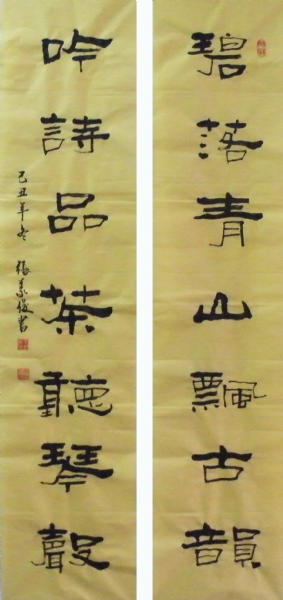 碧落青山飄古韻
吟詩品茶聽琴聲
己丑年冬 張義俊書